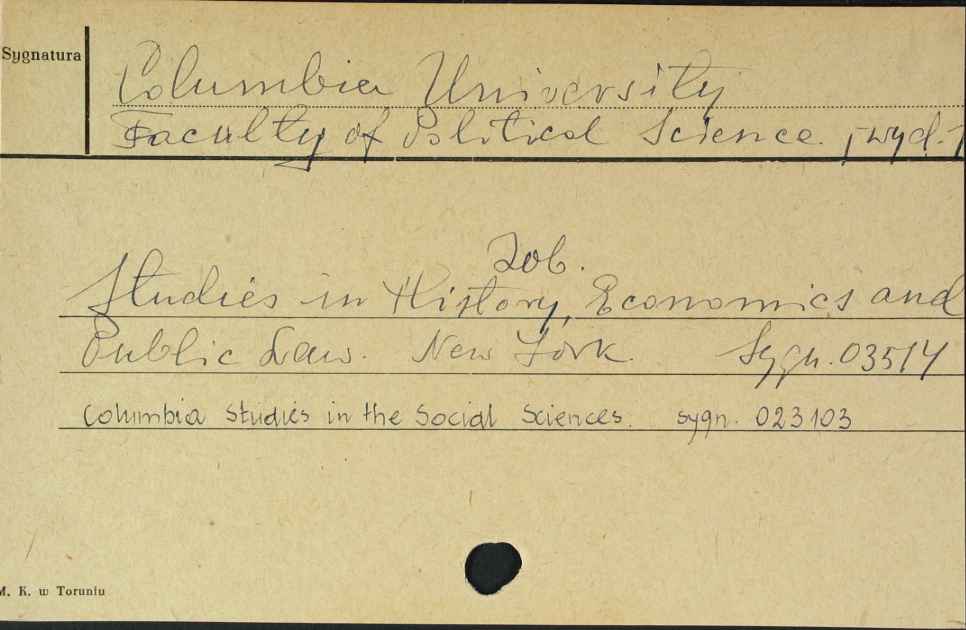 Sygnatura
Columbia University
Faculty of Political Science. [wyd.]
Zob.
Studies in History, Economics and
Public Law. New York. Sygn. 03514
Columbia Studies in the Social Sciences. sygn. 023103
M. K. w Toruniu